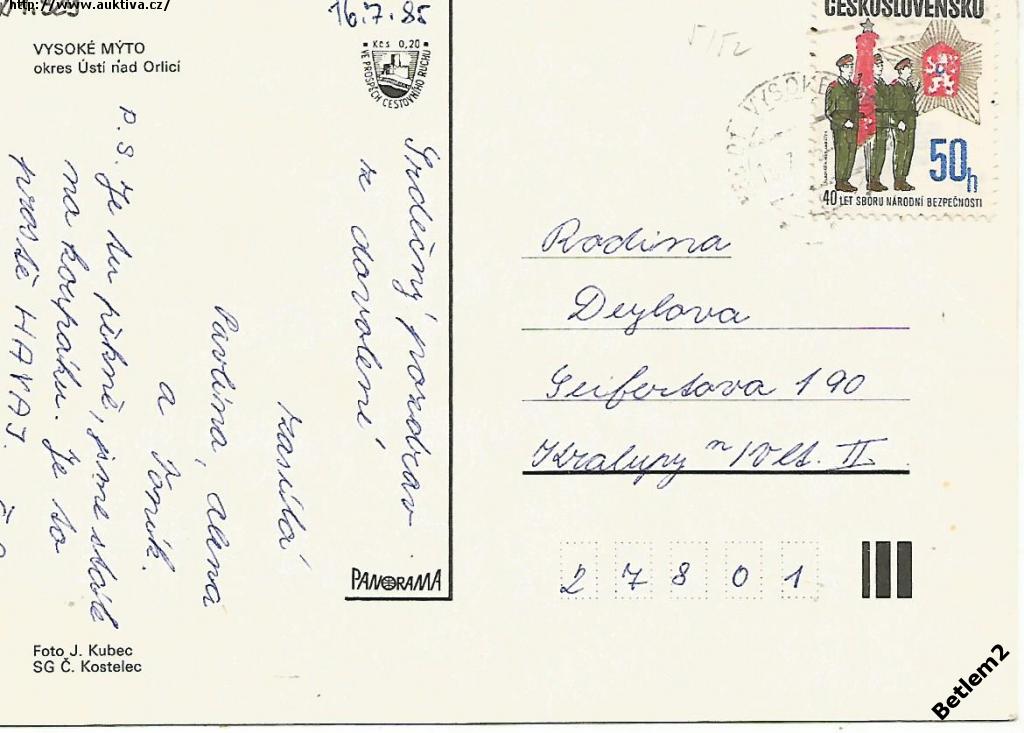 http://www.auktiva.cz/
VYSOKÉ MÝTO
okres Ústí nad Orlicí
16.7.85
Kčs 0,20
VE PROSPĚCH CESTOVNÍHO RUCHU
Srdečný pozdrav
z dovolení
zasílá
Pavlína, alena
a Toník.
P.S. Je tu pěkně, jsme stále
na koupáku. Je to
prostě HAVAJ.
PANORAMA
Foto J. Kubec
SG Č. Kostelec
ČESKOSLOVENSKO
50h
40 LET SBORU NÁRODNÍ BEZPEČNOSTI
VYSOKÉ
Rodina
Deylova
Seifertova 190
Kralupy n/Vlt. II
27801
Betlem2